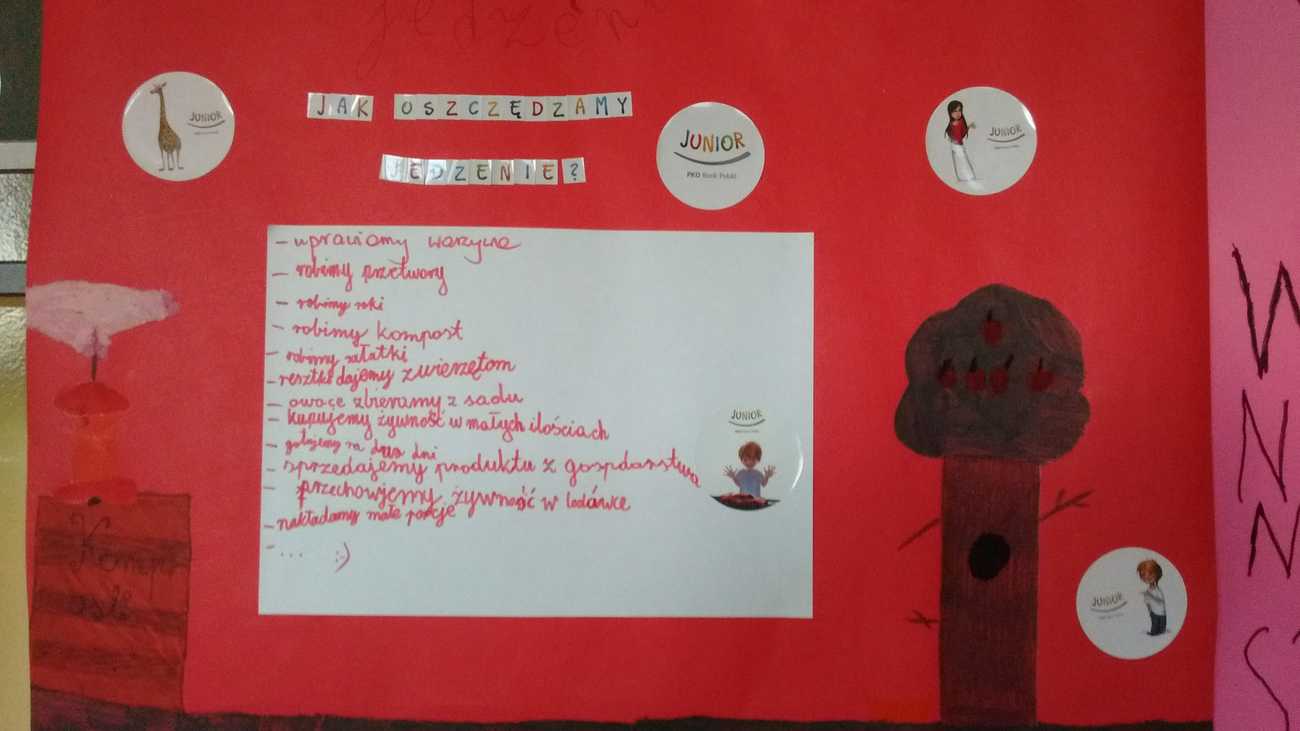 jedzen
JAK OSZCZĘDZAMY
JEDZENIE?
JUNIOR
JUNIOR
PKO Bank Polski
JUNIOR
- uprawiamy warzywa
- robimy przetwory
- robimy soki
- robimy kompost
- robimy sałatki
- resztki dajemy zwierzętom
- owoce zbieramy z sadu
- kupujemy żywność w małych ilościach
- gotujemy na dwa dni
- sprzedajemy produktu z gospdarstwa
- przechowujemy żywność w lodówce
- nakładamy małe porcje
- ... :-)
JUNIOR
Komp
ost
JUNIOR
W
N
N
S